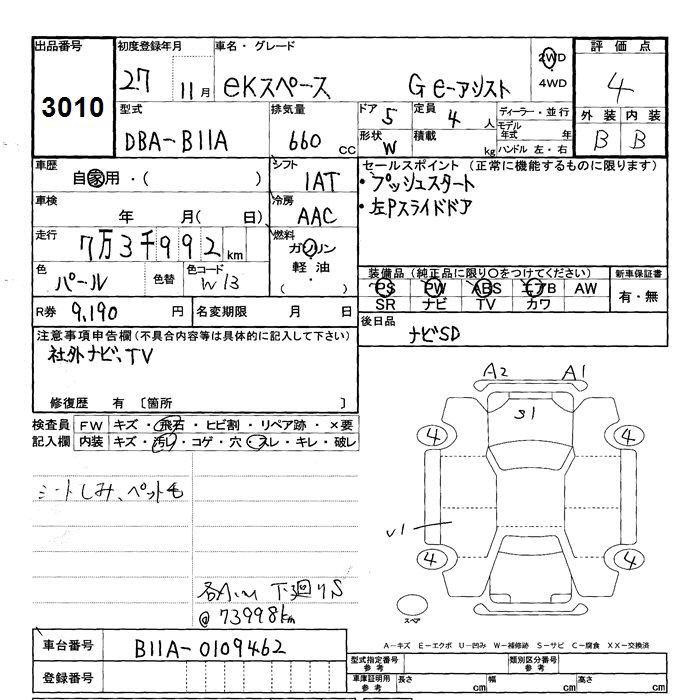 出品番号 初度登録年月 車名・グレード 2WD 評価点
3010 27 11月 eKスペース G e-アシスト 4WD 4
型式 排気量 ドア 5 定員 4人 ディーラー・並行 外装 内装
DBA-B11A 660 cc 形状 W 積載 kg モデル年式 年 B B
ハンドル 左・右
車歴 シフト セールスポイント (正常に機能するものに限ります)
自家用・( ) 1AT ・プッシュスタート
車検 冷房 ・左Pスライドドア
年 月( 日) AAC
走行 燃料
7万3千992km ガソリン
色 色替 色コード 軽油・
パール W13 ( ) 装備品 (純正品に限り○をつけてください) 新車保証書
PS PW ABS エアB AW 有・無
SR ナビ TV カワ
R券 9,190 円 名変期限 月 日 後日品
注意事項申告欄 (不具合内容等は具体的に記入して下さい) ナビSD
社外ナビ、TV
修復歴 有 [箇所 ]
検査員 FW キズ・飛石・ヒビ割・リペア跡・×要
記入欄 内装 キズ・汚レ・コゲ・穴・スレ・キレ・破レ
A2 A1
S1
4 4
シートしみ、ペット毛
U1
4 4
下廻りS
@73998km
スペア
車台番号 B11A-0109462 A-キズ E-エクボ U-凹み W-補修跡 S-サビ C-腐食 XX-交換済
型式指定番号 参考 類別区分番号 参考
登録番号 車庫証明用 参考 長さ cm 幅 cm 高さ cm